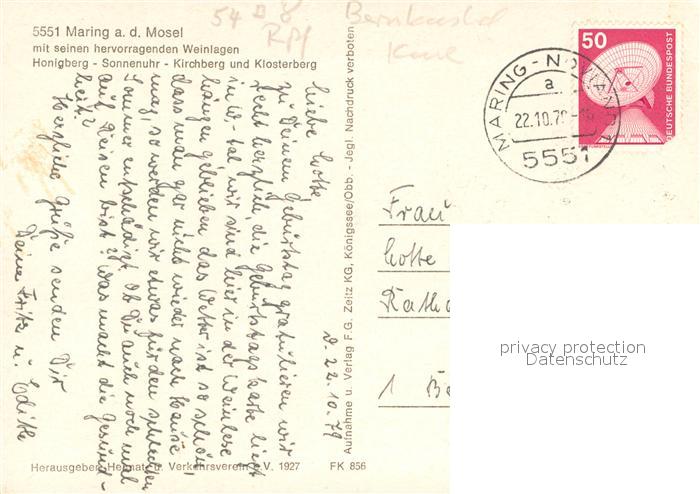 54 D 8
Rpf
Bernkastel
Kues
5551 Maring a. d. Mosel
mit seinen hervorragenden Weinlagen
Honigberg - Sonnenuhr - Kirchberg und Klosterberg
50
DEUTSCHE BUNDESPOST
MARING-NOVIAND
a
22.10.79
5551
d. 22.10.79
Liebe Lotte
zu Deinem Geburtstag gratulieren wir
recht herzlich, die Geburtstagskarte liegt
in W-tal wir sind hier in der Weinlese
hängen geblieben das Wetter ist so schön,
dass man gar nicht wieder nach Hause
mag, so werden wir etwas für den schlechten
Sommer entschädigt. Ob Du auch noch mal
auf Reisen bist? Was macht die Gesund-
heit?
Herzliche Grüße senden Dir
Deine Fritz u. Edith
Aufnahme u. Verlag F.G. Zeitz KG, Königssee/Obb. - Jegl. Nachdruck verboten
Frau
Lotte
Katha
1 Be
privacy protection
Datenschutz
Herausgeber: Heimat- u. Verkehrsverein e.V. 1927
FK 856